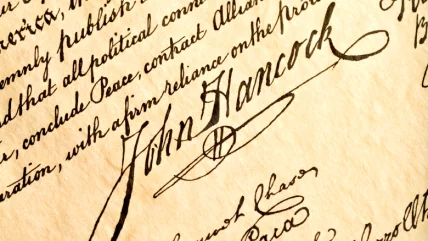 emnly publish
nd that all political conne
r, conclude Peace, contract Allian
eration, with a firm reliance on the prot
John Hancock
Chase
Paca